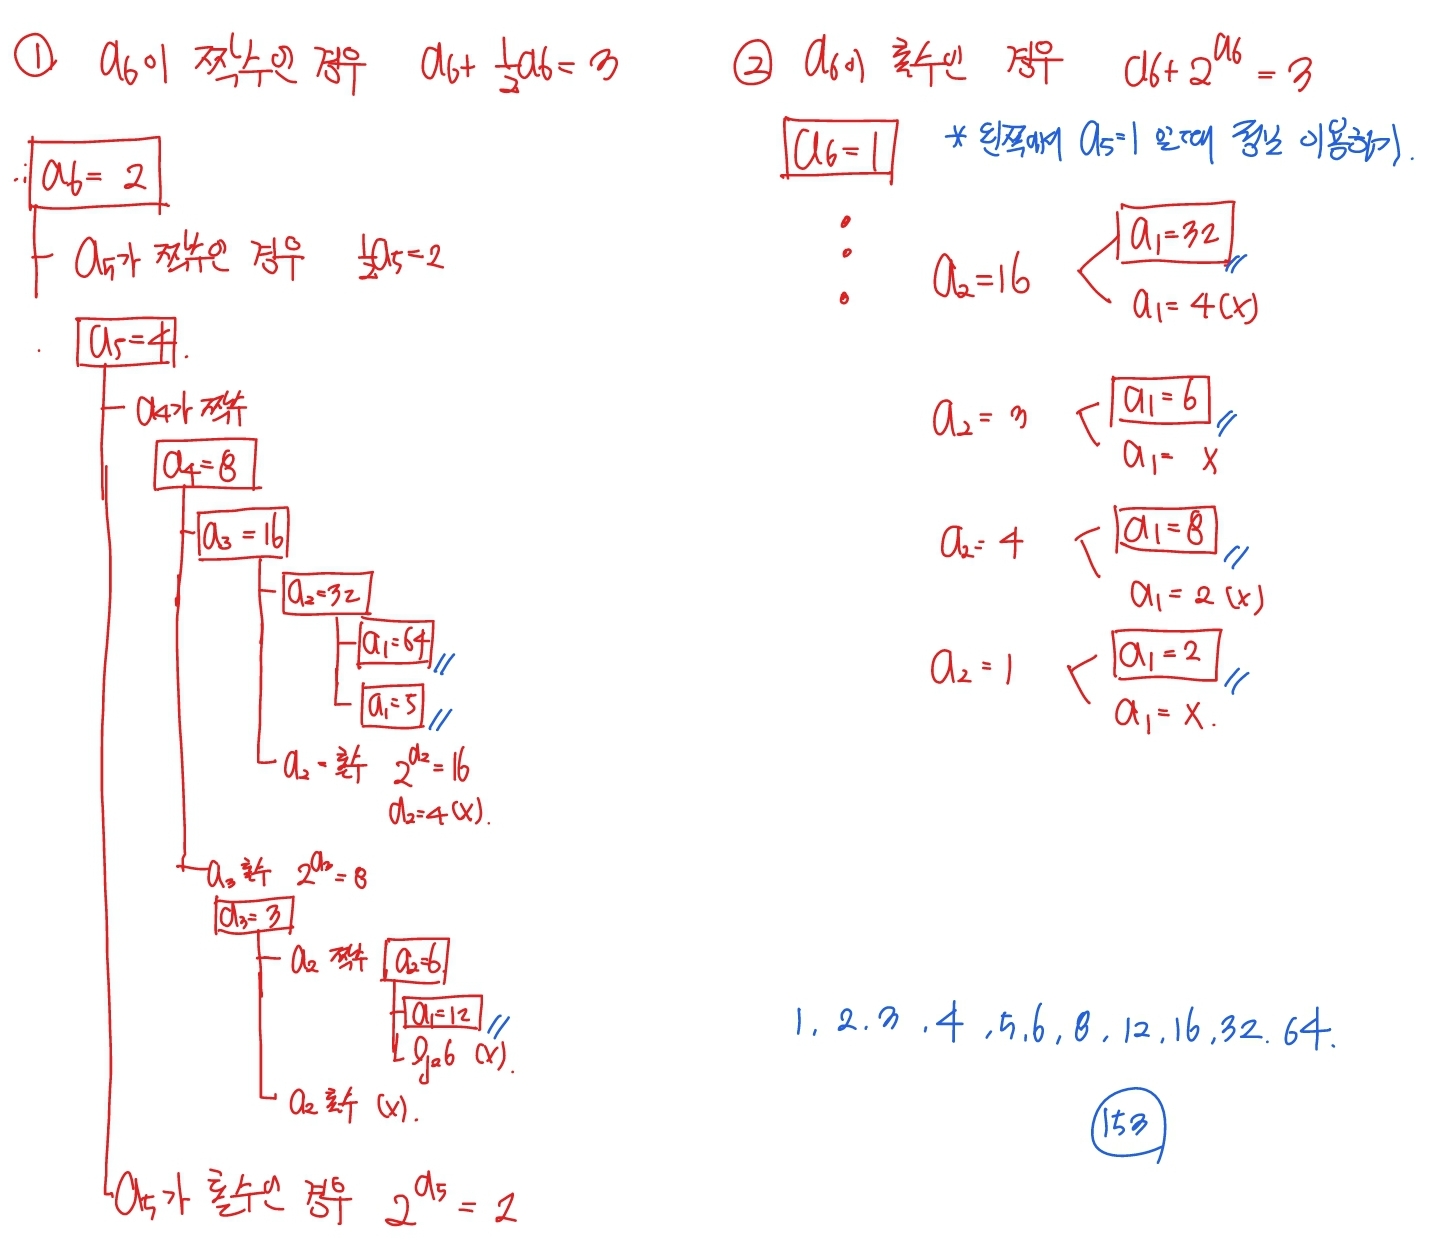 ① a₆이 짝수인 경우 a₆+½a₆=3
∴ a₆=2
a₅가 짝수인 경우 ½a₅=2
a₅=4.
a₄가 짝수
a₄=8
a₃=16
a₂=32
a₁=64
a₁=5
a₂-홀수 2^a₂=16
a₂=4(x).
a₃ 홀수 2^a₃=8
a₃=3
a₂ 짝수 a₂=6
a₁=12
log₂6 (x).
a₂ 홀수 (x).
a₅가 홀수인 경우 2^a₅=2
② a₆이 홀수인 경우 a₆+2^a₆=3
a₆=1
* 왼쪽에서 a₅=1 일때 정보 이용하기.
a₂=16
a₁=32
a₁=4(x)
a₂=3
a₁=6
a₁= x
a₂=4
a₁=8
a₁=2(x)
a₂=1
a₁=2
a₁=x.
1, 2.3, 4, 5,6, 8, 12, 16, 32. 64.
153